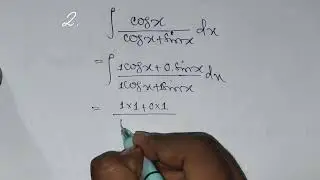 2.
∫ cosx / cosx+sinx dx
= ∫ 1cosx+0.sinx / 1cosx+1sinx dx
= 1×1+0×1 / 1